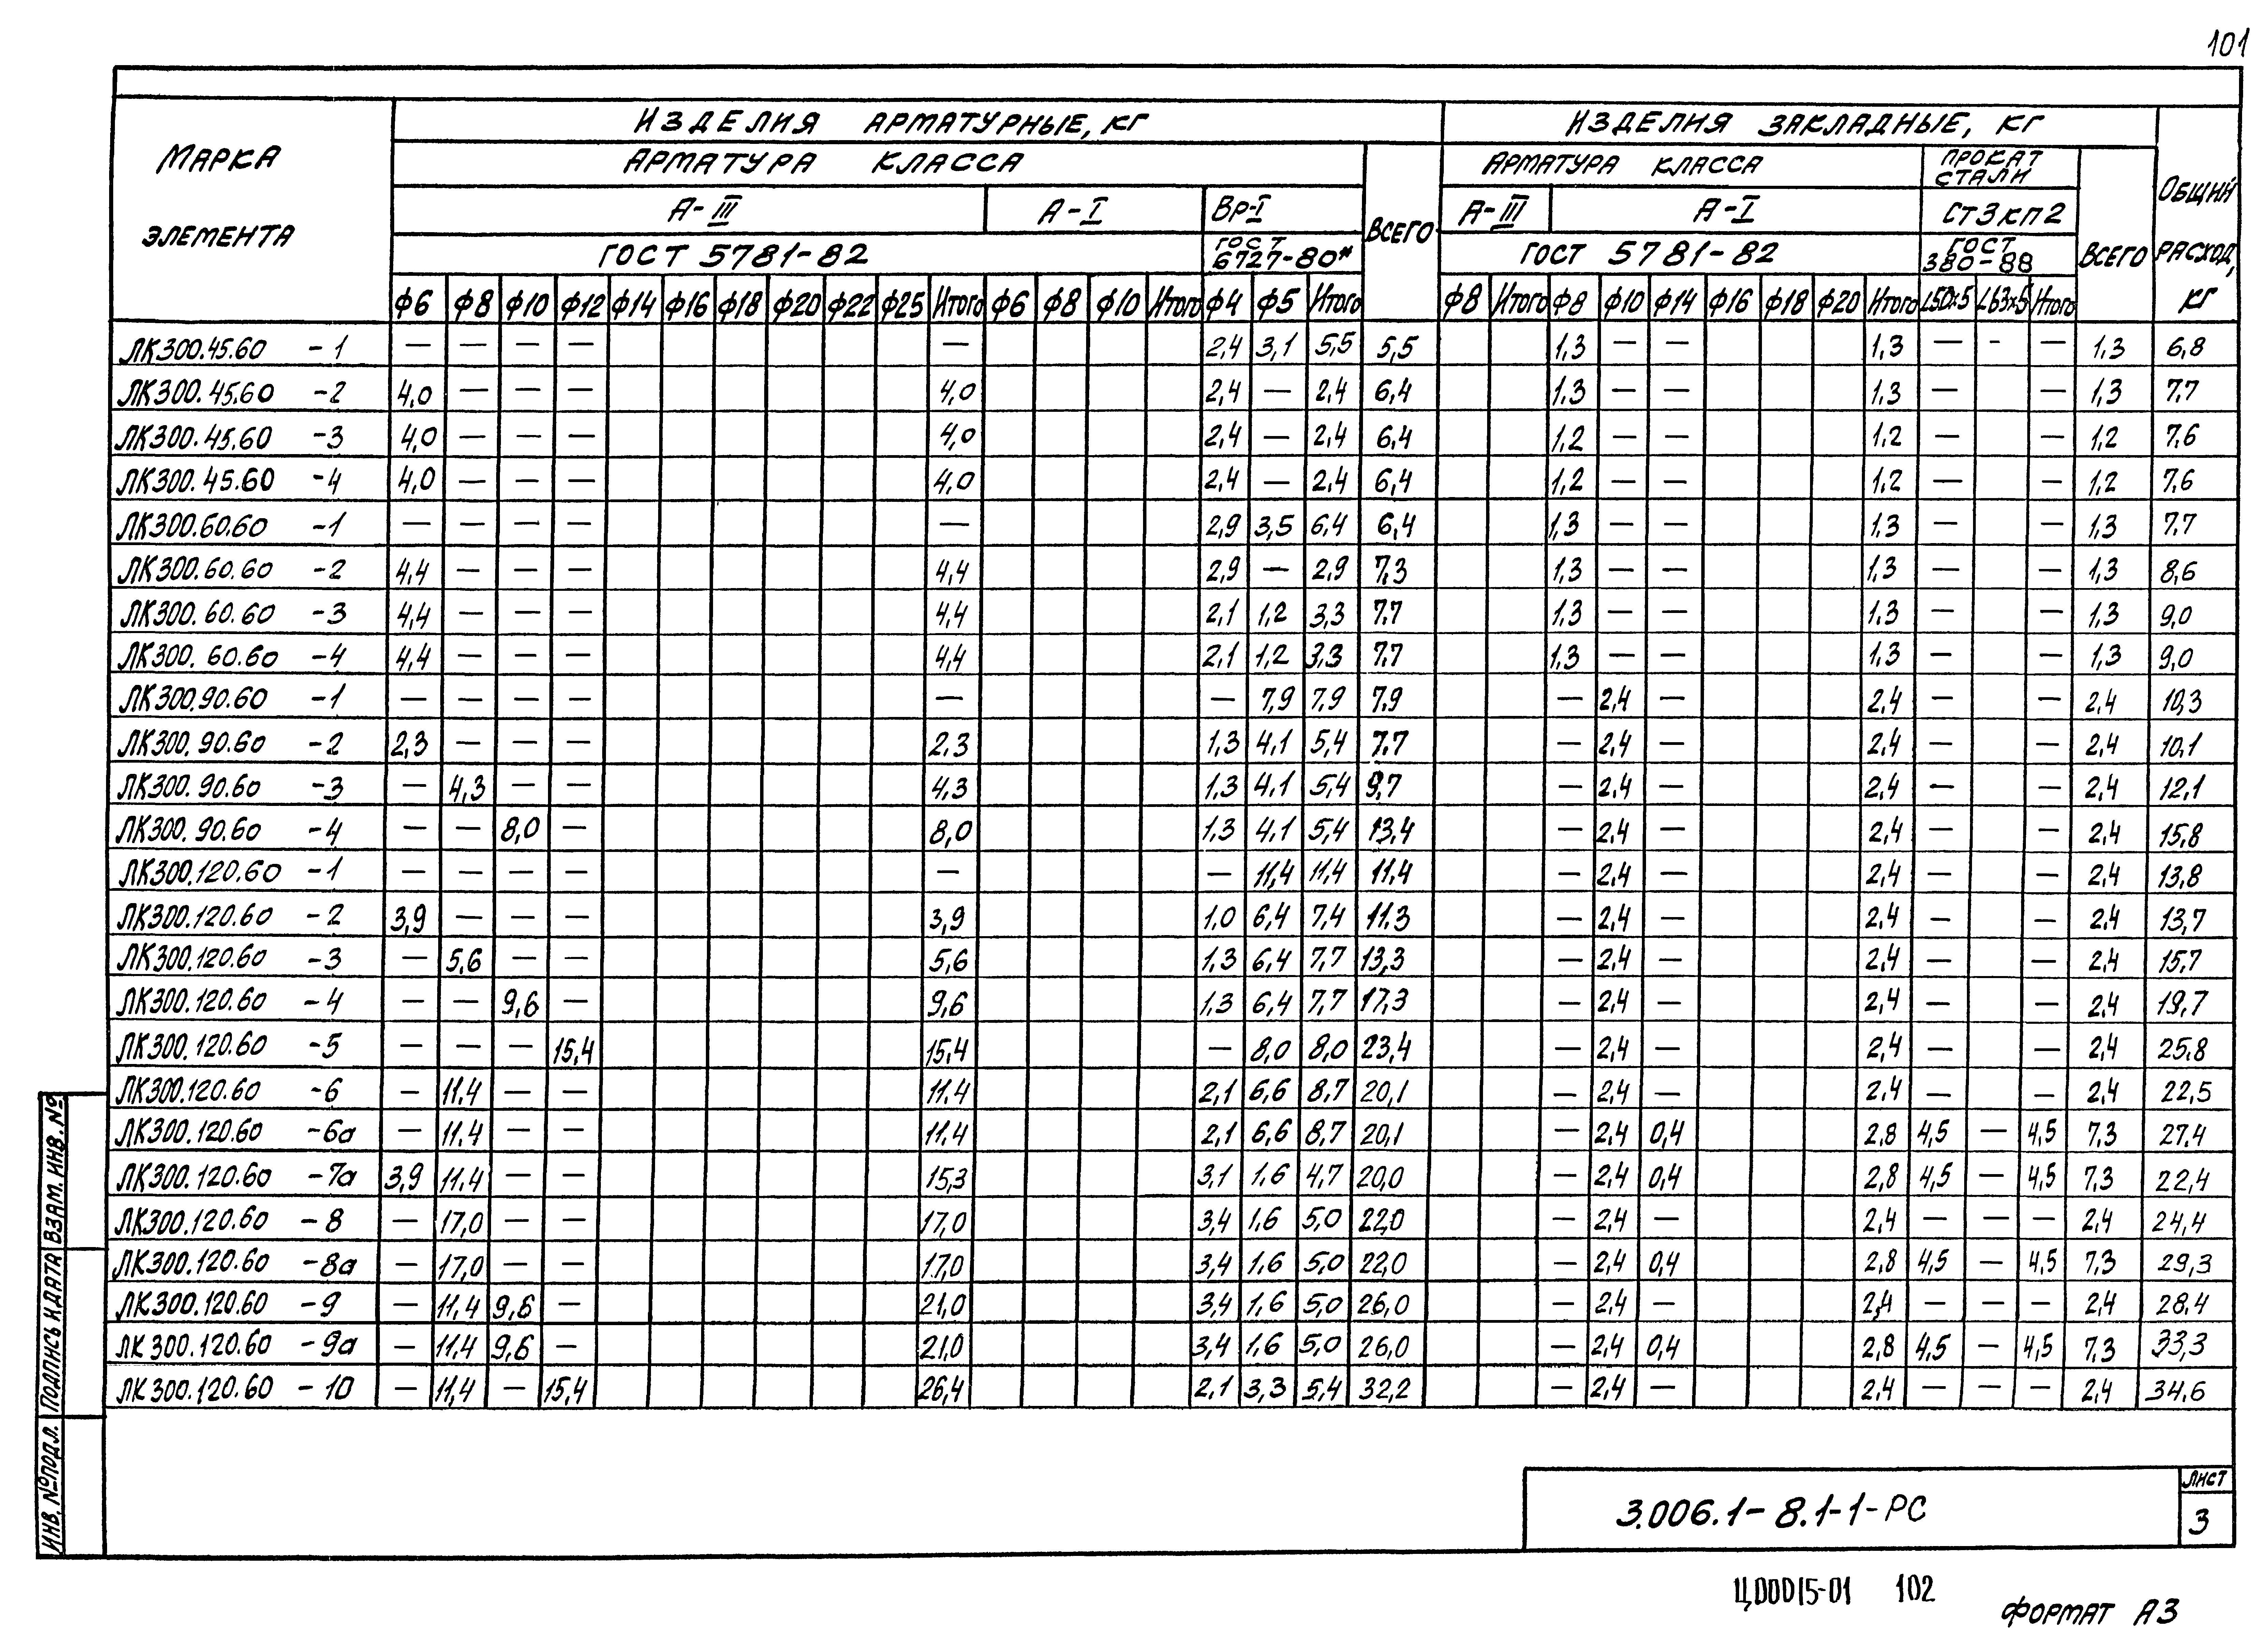 101
МАРКА ЭЛЕМЕНТА
ИЗДЕЛИЯ АРМАТУРНЫЕ, КГ
ИЗДЕЛИЯ ЗАКЛАДНЫЕ, КГ
ОБЩИЙ РАСХОД, КГ
АРМАТУРА КЛАССА
ВСЕГО
АРМАТУРА КЛАССА
ПРОКАТ СТАЛИ
ВСЕГО
А-III А-I Вр-I А-III А-I СТ3КП2
ГОСТ 5781-82 ГОСТ 6727-80* ГОСТ 5781-82 ГОСТ 380-88
Ф6 Ф8 Ф10 Ф12 Ф14 Ф16 Ф18 Ф20 Ф22 Ф25 Итого Ф6 Ф8 Ф10 Итого Ф4 Ф5 Итого Ф8 Итого Ф8 Ф10 Ф14 Ф16 Ф18 Ф20 Итого L50х5 L63х5 Итого
ЛК300.45.60 -1 — — — — — 2,4 3,1 5,5 5,5 1,3 — — 1,3 — - — 1,3 6,8
ЛК300.45.60 -2 4,0 — — — 4,0 2,4 — 2,4 6,4 1,3 — — 1,3 — — 1,3 7,7
ЛК300.45.60 -3 4,0 — — — 4,0 2,4 — 2,4 6,4 1,2 — — 1,2 — — 1,2 7,6
ЛК300.45.60 -4 4,0 — — — 4,0 2,4 — 2,4 6,4 1,2 — — 1,2 — — 1,2 7,6
ЛК300.60.60 -1 — — — — — 2,9 3,5 6,4 6,4 1,3 — — 1,3 — — 1,3 7,7
ЛК300.60.60 -2 4,4 — — — 4,4 2,9 — 2,9 7,3 1,3 — — 1,3 — — 1,3 8,6
ЛК300.60.60 -3 4,4 — — — 4,4 2,1 1,2 3,3 7,7 1,3 — — 1,3 — — 1,3 9,0
ЛК300.60.60 -4 4,4 — — — 4,4 2,1 1,2 3,3 7,7 1,3 — — 1,3 — — 1,3 9,0
ЛК300.90.60 -1 — — — — — — 7,9 7,9 7,9 — 2,4 — 2,4 — — 2,4 10,3
ЛК300.90.60 -2 2,3 — — — 2,3 1,3 4,1 5,4 7,7 — 2,4 — 2,4 — — 2,4 10,1
ЛК300.90.60 -3 — 4,3 — — 4,3 1,3 4,1 5,4 9,7 — 2,4 — 2,4 — — 2,4 12,1
ЛК300.90.60 -4 — — 8,0 — 8,0 1,3 4,1 5,4 13,4 — 2,4 — 2,4 — — 2,4 15,8
ЛК300.120.60 -1 — — — — — — 11,4 11,4 11,4 — 2,4 — 2,4 — — 2,4 13,8
ЛК300.120.60 -2 3,9 — — — 3,9 1,0 6,4 7,4 11,3 — 2,4 — 2,4 — — 2,4 13,7
ЛК300.120.60 -3 — 5,6 — — 5,6 1,3 6,4 7,7 13,3 — 2,4 — 2,4 — — 2,4 15,7
ЛК300.120.60 -4 — — 9,6 — 9,6 1,3 6,4 7,7 17,3 — 2,4 — 2,4 — — 2,4 19,7
ЛК300.120.60 -5 — — — 15,4 15,4 — 8,0 8,0 23,4 — 2,4 — 2,4 — — 2,4 25,8
ЛК300.120.60 -6 — 11,4 — — 11,4 2,1 6,6 8,7 20,1 — 2,4 — 2,4 — — 2,4 22,5
ЛК300.120.60 -6а — 11,4 — — 11,4 2,1 6,6 8,7 20,1 — 2,4 0,4 2,8 4,5 — 4,5 7,3 27,4
ЛК300.120.60 -7а 3,9 11,4 — — 15,3 3,1 1,6 4,7 20,0 — 2,4 0,4 2,8 4,5 — 4,5 7,3 22,4
ЛК300.120.60 -8 — 17,0 — — 17,0 3,4 1,6 5,0 22,0 — 2,4 — 2,4 — — — 2,4 24,4
ЛК300.120.60 -8а — 17,0 — — 17,0 3,4 1,6 5,0 22,0 — 2,4 0,4 2,8 4,5 — 4,5 7,3 29,3
ЛК300.120.60 -9 — 11,4 9,6 — 21,0 3,4 1,6 5,0 26,0 — 2,4 — 2,4 — — — 2,4 28,4
ЛК300.120.60 -9а — 11,4 9,6 — 21,0 3,4 1,6 5,0 26,0 — 2,4 0,4 2,8 4,5 — 4,5 7,3 33,3
ЛК300.120.60 -10 — 11,4 — 15,4 26,4 2,1 3,3 5,4 32,2 — 2,4 — 2,4 — — — 2,4 34,6
ИНВ. № ПОДЛ. ПОДПИСЬ И ДАТА ВЗАМ. ИНВ. №
3.006.1-8.1-1-РС
ЛИСТ
3
Ц00015-01 102
ФОРМАТ А3